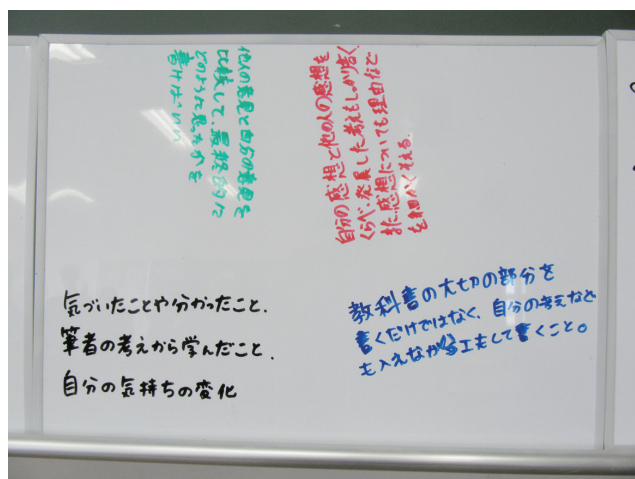 他人の意見と自分の意見を
比較して、最終的に
どのように思ったかを
書けばいい
自分の感想と他の人の感想を
くらべ、発展した考えもしっかり書く。
また、感想についても理由など
を細かくそえる。
気づいたことや分かったこと、
筆者の考えから学んだこと、
自分の気持ちの変化
教科書の大切の部分を
書くだけではなく、自分の考えなど
も入えながら工夫して書くこと。